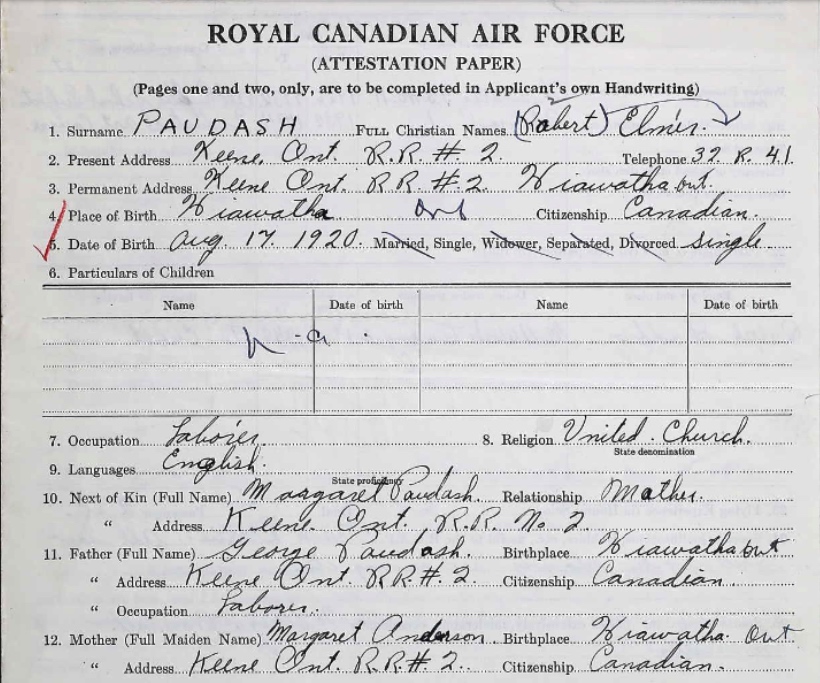 ROYAL CANADIAN AIR FORCE
(ATTESTATION PAPER)
(Pages one and two, only, are to be completed in Applicant's own Handwriting)
1. Surname PAUDASH FULL Christian Names (Robert) Elmer.
2. Present Address Keene, Ont. R.R. #. 2. Telephone 32. R. 41.
3. Permanent Address Keene Ont. RR #.2. Hiawatha ont.
4. Place of Birth Hiawatha Ont Citizenship Canadian.
5. Date of Birth Aug. 17. 1920. Married, Single, Widower, Separated, Divorced single
6. Particulars of Children
Name Date of birth Name Date of birth
N.a.
7. Occupation Laborer. 8. Religion United. Church.
State denomination
9. Languages English.
State proficiency
10. Next of Kin (Full Name) Margaret Paudash. Relationship Mother.
" Address Keene Ont. R.R. No. 2
11. Father (Full Name) George Paudash. Birthplace Hiawatha ont
" Address Keene Ont. RR.#. 2. Citizenship Canadian.
" Occupation Laborer.
12. Mother (Full Maiden Name) Margaret Anderson. Birthplace Hiawatha. Ont
" Address Keene Ont. R.R.#. 2. Citizenship Canadian.